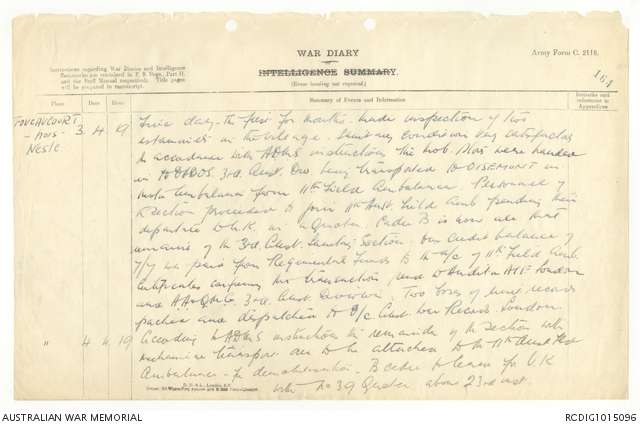 WAR DIARY
Army Form C. 2118.
INTELLIGENCE SUMMARY.
(Erase heading not required.)
Instructions regarding War Diaries and Intelligence
Summaries are contained in F. S. Regs., Part II.
and the Staff Manual respectively. Title pages
will be prepared in manuscript.
164
Place Date Hour Summary of Events and Information Remarks and references to Appendices
FOUCAUCOURT 3. 4. 19 Fine day - the first for months. Made inspection of two
- Hors - estaminets in the village. Sanitary conditions very satisfactory
Nesle In accordance with ADMS instructions the mob. stores were handed
in to DADOS 3rd Aust. Div being transported to OISEMONT in
motor ambulance from 11th Field Ambulance. Personnel of
Section proceeded to join 11th Aust. Field Amb pending their
departure to U.K. as a Quota. Cadre B is now all that
remains of the 3rd Aust. Sanitary Section. Our credit balance of
was paid from Regimental Funds B to a/c of 11th Field Amb.
Certificates confirming this transaction, send to Auditor AIF London
and 3rd Aust Division. Two boxes of records
packed and dispatched to O/c Aust War Records London.
" 4 4 19 According to ADMS instructions the remainder of the Section with
mechanical transport are to be attached to the 11th Aust Field
Ambulance for demobilisation. B cadre to leave for U.K
with No 39 Quota about 23rd inst.
AUSTRALIAN WAR MEMORIAL
RCDIG1015096